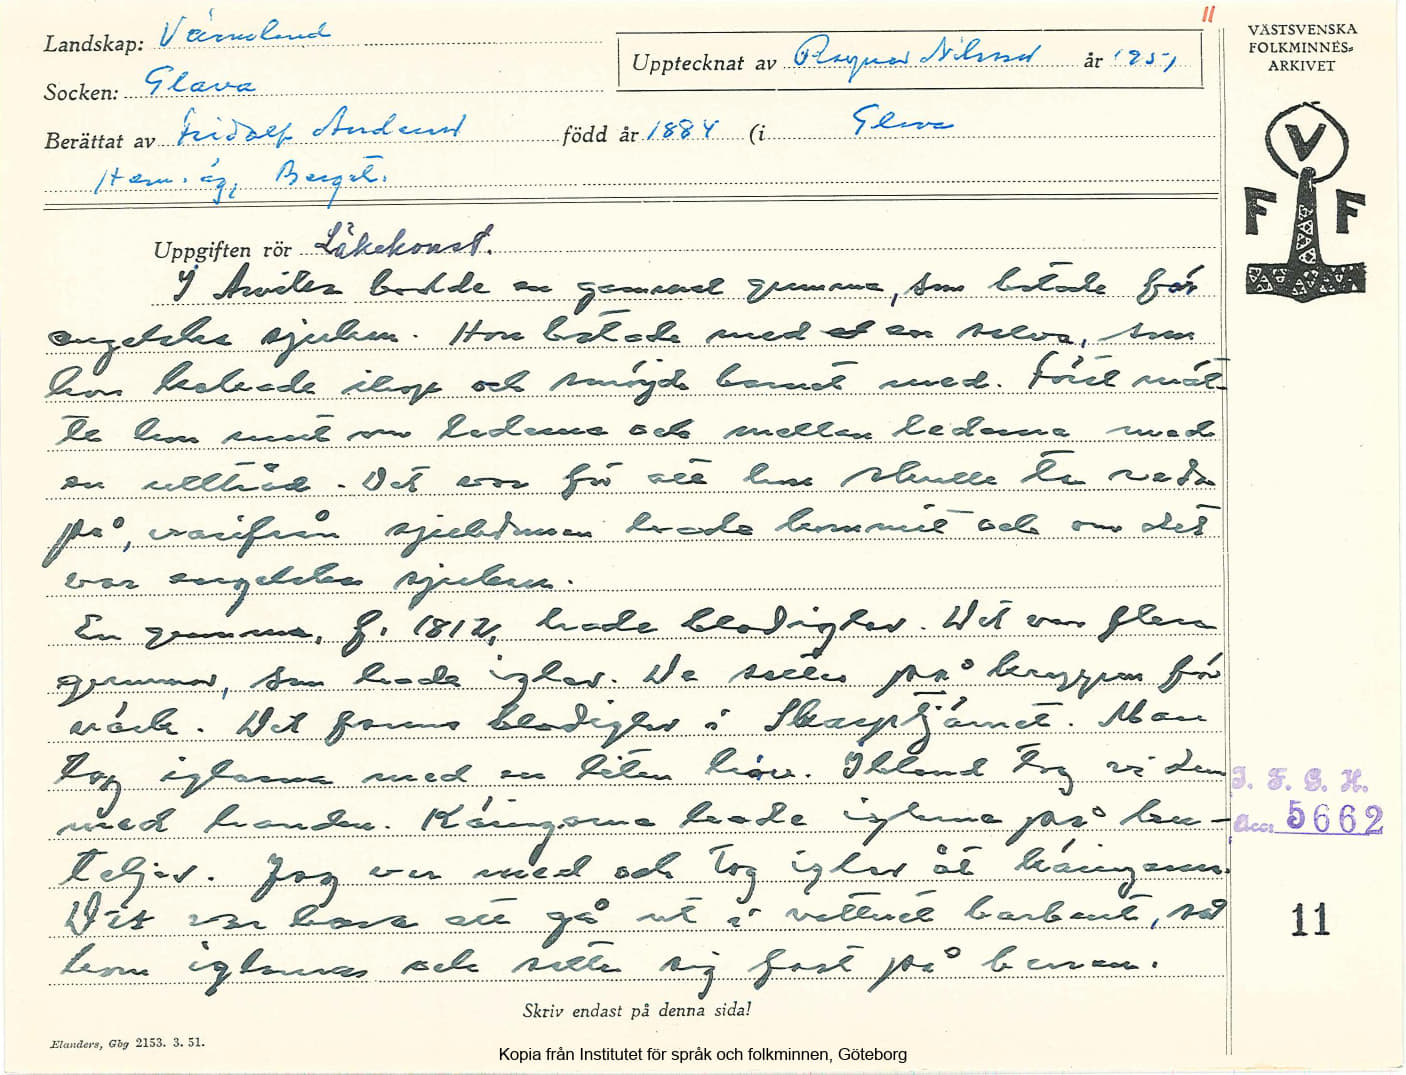 11
Landskap: Värmland
Upptecknat av Ragnar Nilsson år 1951
VÄSTSVENSKA
FOLKMINNES-
ARKIVET
Socken: Glava
Berättat av Fridolf Anderss född år 1884 (i Glava
Hem. äg, Berget.
V
F F
Uppgiften rör Läkekonst.
I bodde en gammal gumma, som botade för
engelska sjukan. Hon botade med en salva, som
hon kokade ihop och smöjde barnet med. Först mät-
te hon runt om lederna och mellan lederna med
en ulltråd. Det var för att hon skulle ta reda
på, varifrån sjukdomen hade kommit och om det
var engelska sjukan.
En gumma, f. 1812, hade blodiglar. Det var flera
gummor, som hade iglar. De sattes på kroppen för
värk. Det fanns blodiglar i Skarptjärnet. Man
tog iglarna med en liten håv. Ibland tog vi dem
med handen. Käringarna hade iglarna på bu-
teljer. Jag var med och tog iglar åt käringarna.
Det var bara att gå ut i vattnet barbent, så
kom iglarna och satte sig fast på benen.
I. F. G. H.
Acc. 5662
11
Skriv endast på denna sida!
Elanders, Gbg 2153. 3. 51.
Kopia från Institutet för språk och folkminnen, Göteborg